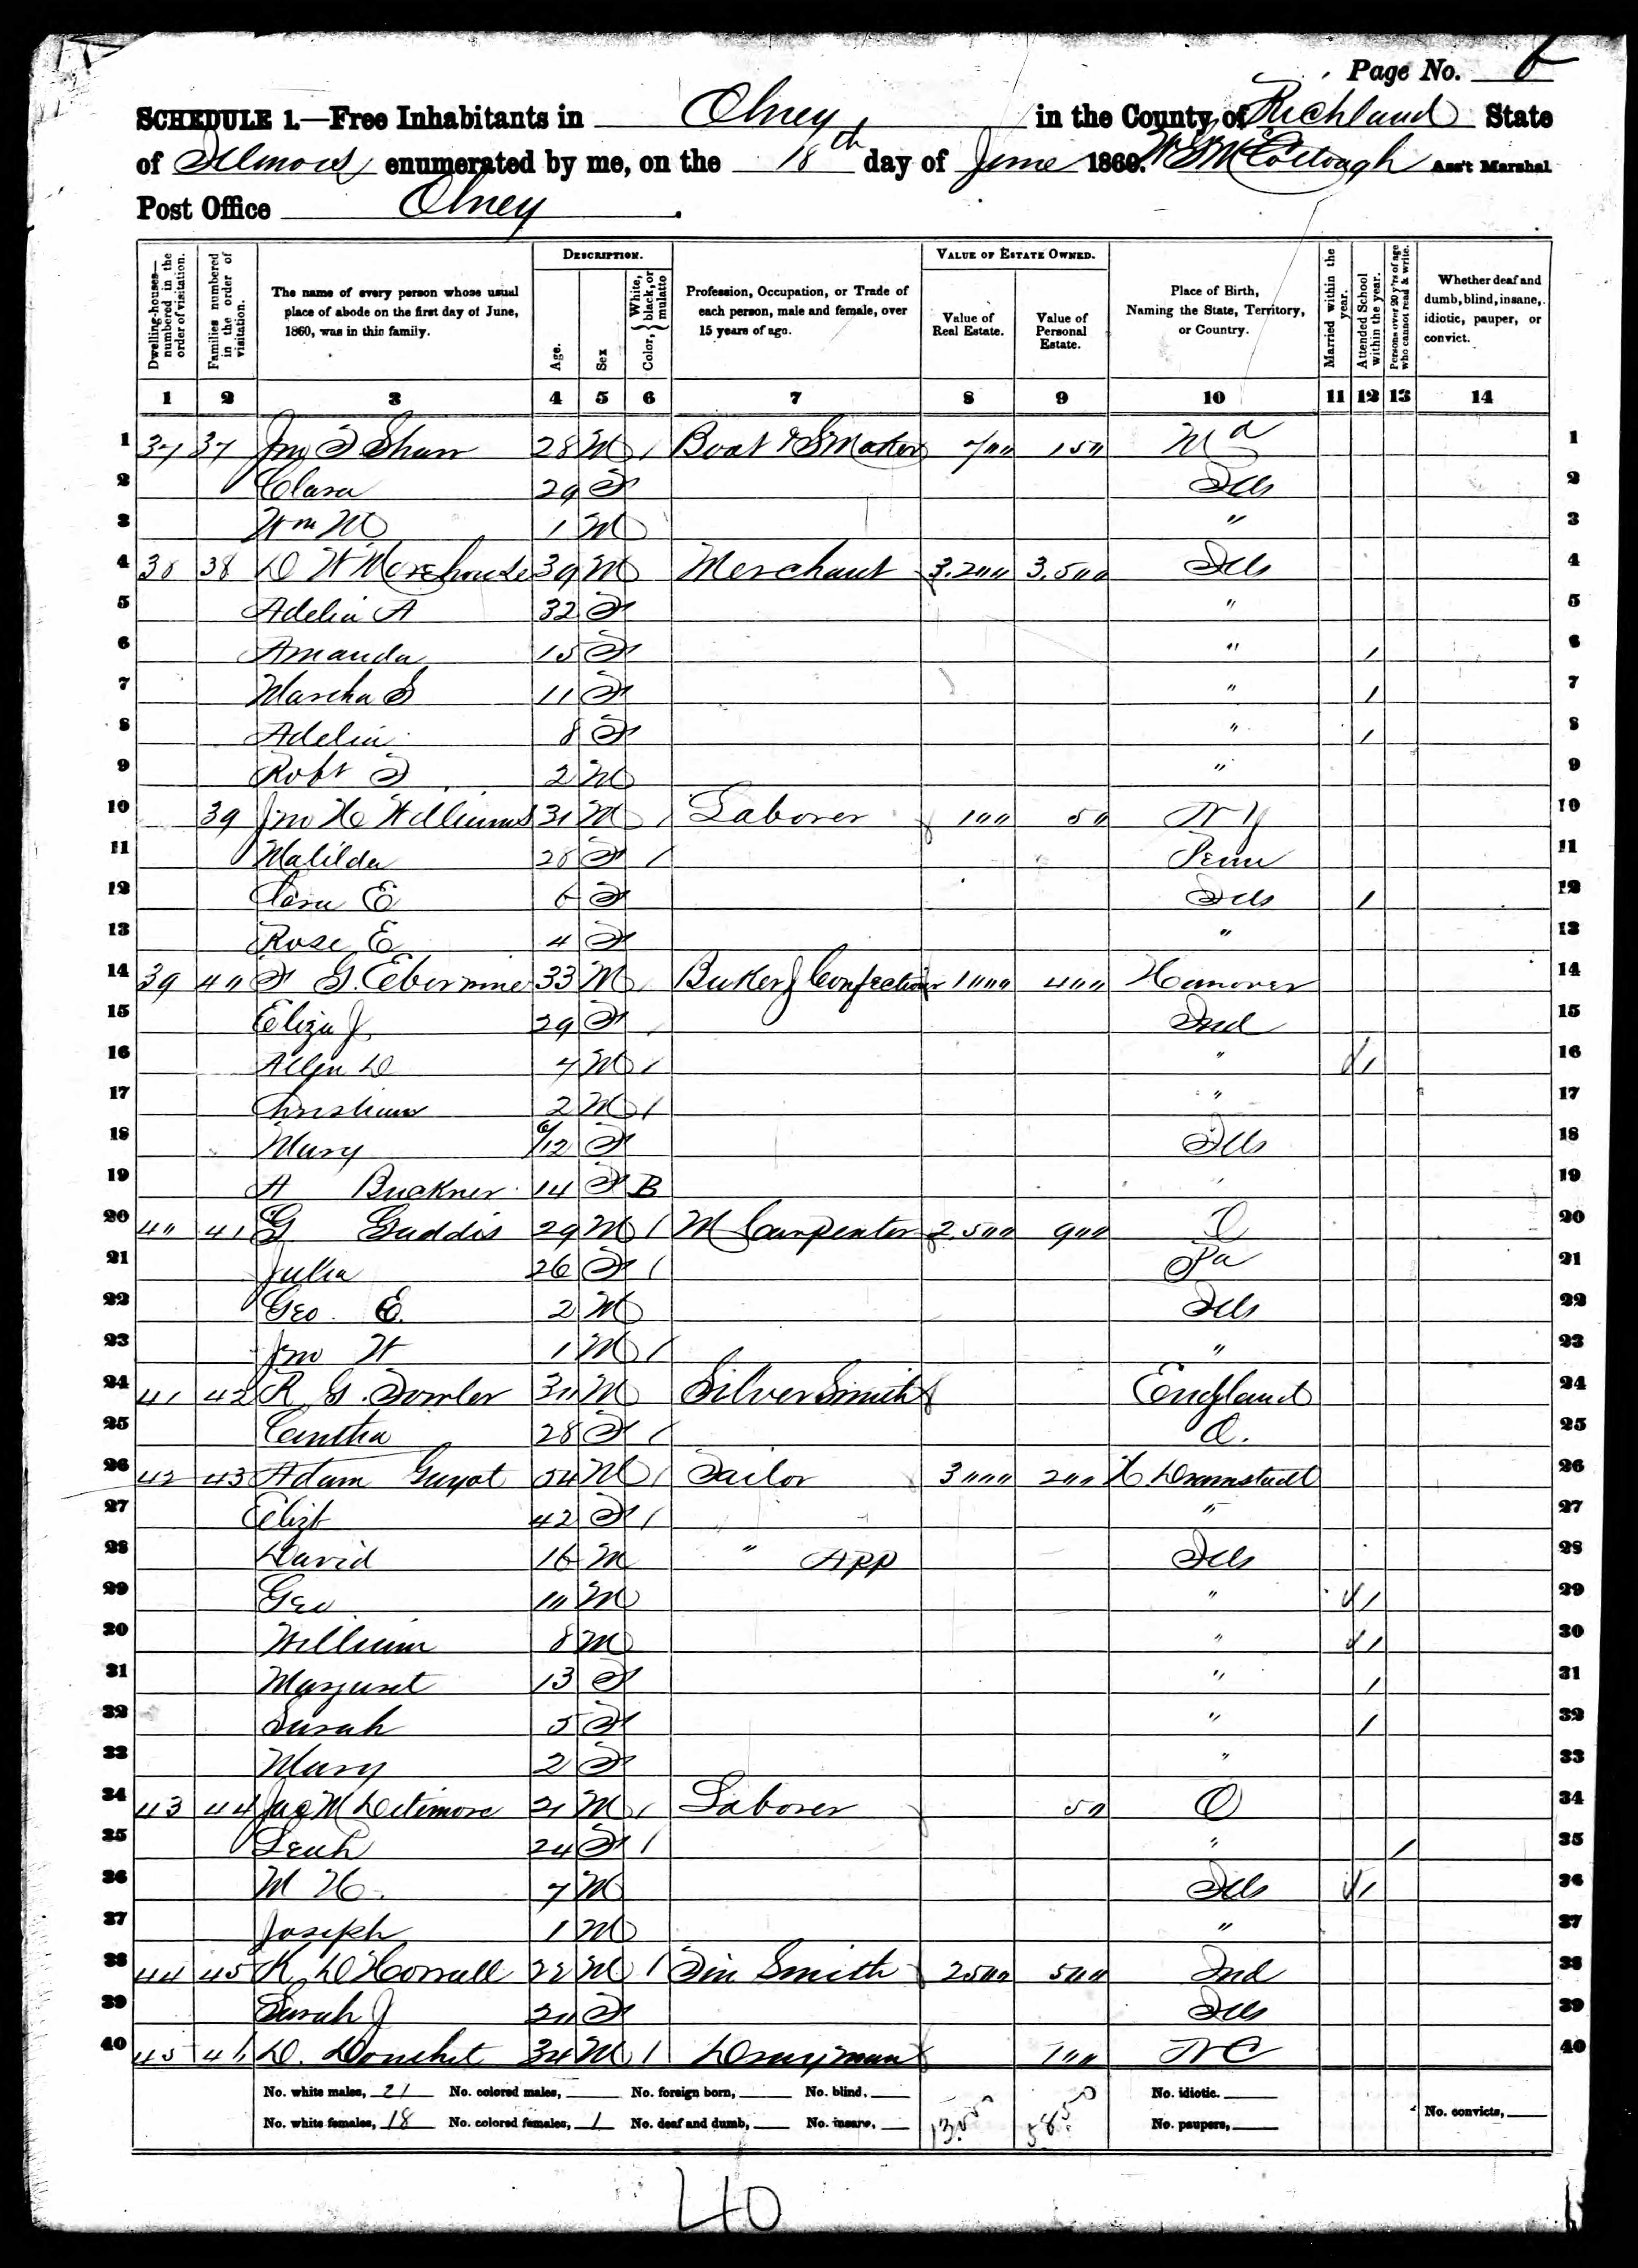 Page No. 6
SCHEDULE 1.—Free Inhabitants in Olney in the County of Richland State
of Illinois enumerated by me, on the 18th day of June 1860. Ass't Marshal
Post Office Olney.
DESCRIPTION. VALUE OF ESTATE OWNED.
Dwelling-houses—numbered in the order of visitation. Families numbered in the order of visitation. The name of every person whose usual place of abode on the first day of June, 1860, was in this family. Age. Sex Color, White, black, or mulatto Profession, Occupation, or Trade of each person, male and female, over 15 years of age. Value of Real Estate. Value of Personal Estate. Place of Birth, Naming the State, Territory, or Country. Married within the year. Attended School within the year. Persons over 20 y'rs of age who cannot read & write. Whether deaf and dumb, blind, insane, idiotic, pauper, or convict.
1 2 3 4 5 6 7 8 9 10 11 12 13 14
1 37 37 Jno Shaw 28 M / 700 150 Md 1
2 Clara 29 F Ills 2
3 Wm M 1 M " 3
4 38 38 D W Morehouse 39 M Merchant 3.200 3.500 Ills 4
5 Adelia A 32 F " 5
6 Amanda 15 F " / 6
7 Martha S 11 F " / 7
8 Adelia 8 F " / 8
9 Robt 2 M " 9
10 39 Jno H Williams 31 M / Laborer 100 50 N Y 10
11 Matilda 28 F / Penn 11
12 E 6 F Ills / 12
13 Rose E 4 F " 13
14 39 40 F G. 33 M / Baker & Confectioner 1000 400 Hanover 14
15 Eliza J 29 F / Ind 15
16 Allen D 7 M / " / 16
17 Christian 2 M / " 17
18 Mary 6/12 F Ills 18
19 A Buckner 14 F B " 19
20 40 41 G Gaddis 29 M / M Carpenter 2.500 900 O 20
21 Julia 26 F / Pa 21
22 Geo. E. 2 M Ills 22
23 Jno W 1 M / " 23
24 41 42 R G. Fowler 30 M Silver Smith England 24
25 28 F / O. 25
26 42 43 Adam Guyot 54 M / Tailor 3000 200 H. Darmstadt 26
27 Elizt 42 F / " 27
28 David 16 M " App Ills 28
29 Geo 10 M " / 29
30 William 8 M " / 30
31 Margaret 13 F " / 31
32 Sarah 5 F " / 32
33 Mary 2 F " 33
34 43 44 21 M / Laborer 50 O 34
35 Leah 24 F / " / 35
36 M H. 7 M Ills / 36
37 Joseph 1 M " 37
38 44 45 K D Horrall 22 M / Tin Smith 2500 500 Ind 38
39 Sarah J 20 F Ills 39
40 45 46 D. 34 M / Drayman 100 N C 40
No. white males, 21 No. colored males, No. foreign born, No. blind, No. idiotic.
No. white females, 18 No. colored females, 1 No. deaf and dumb, No. insane, No. paupers, No. convicts,
40